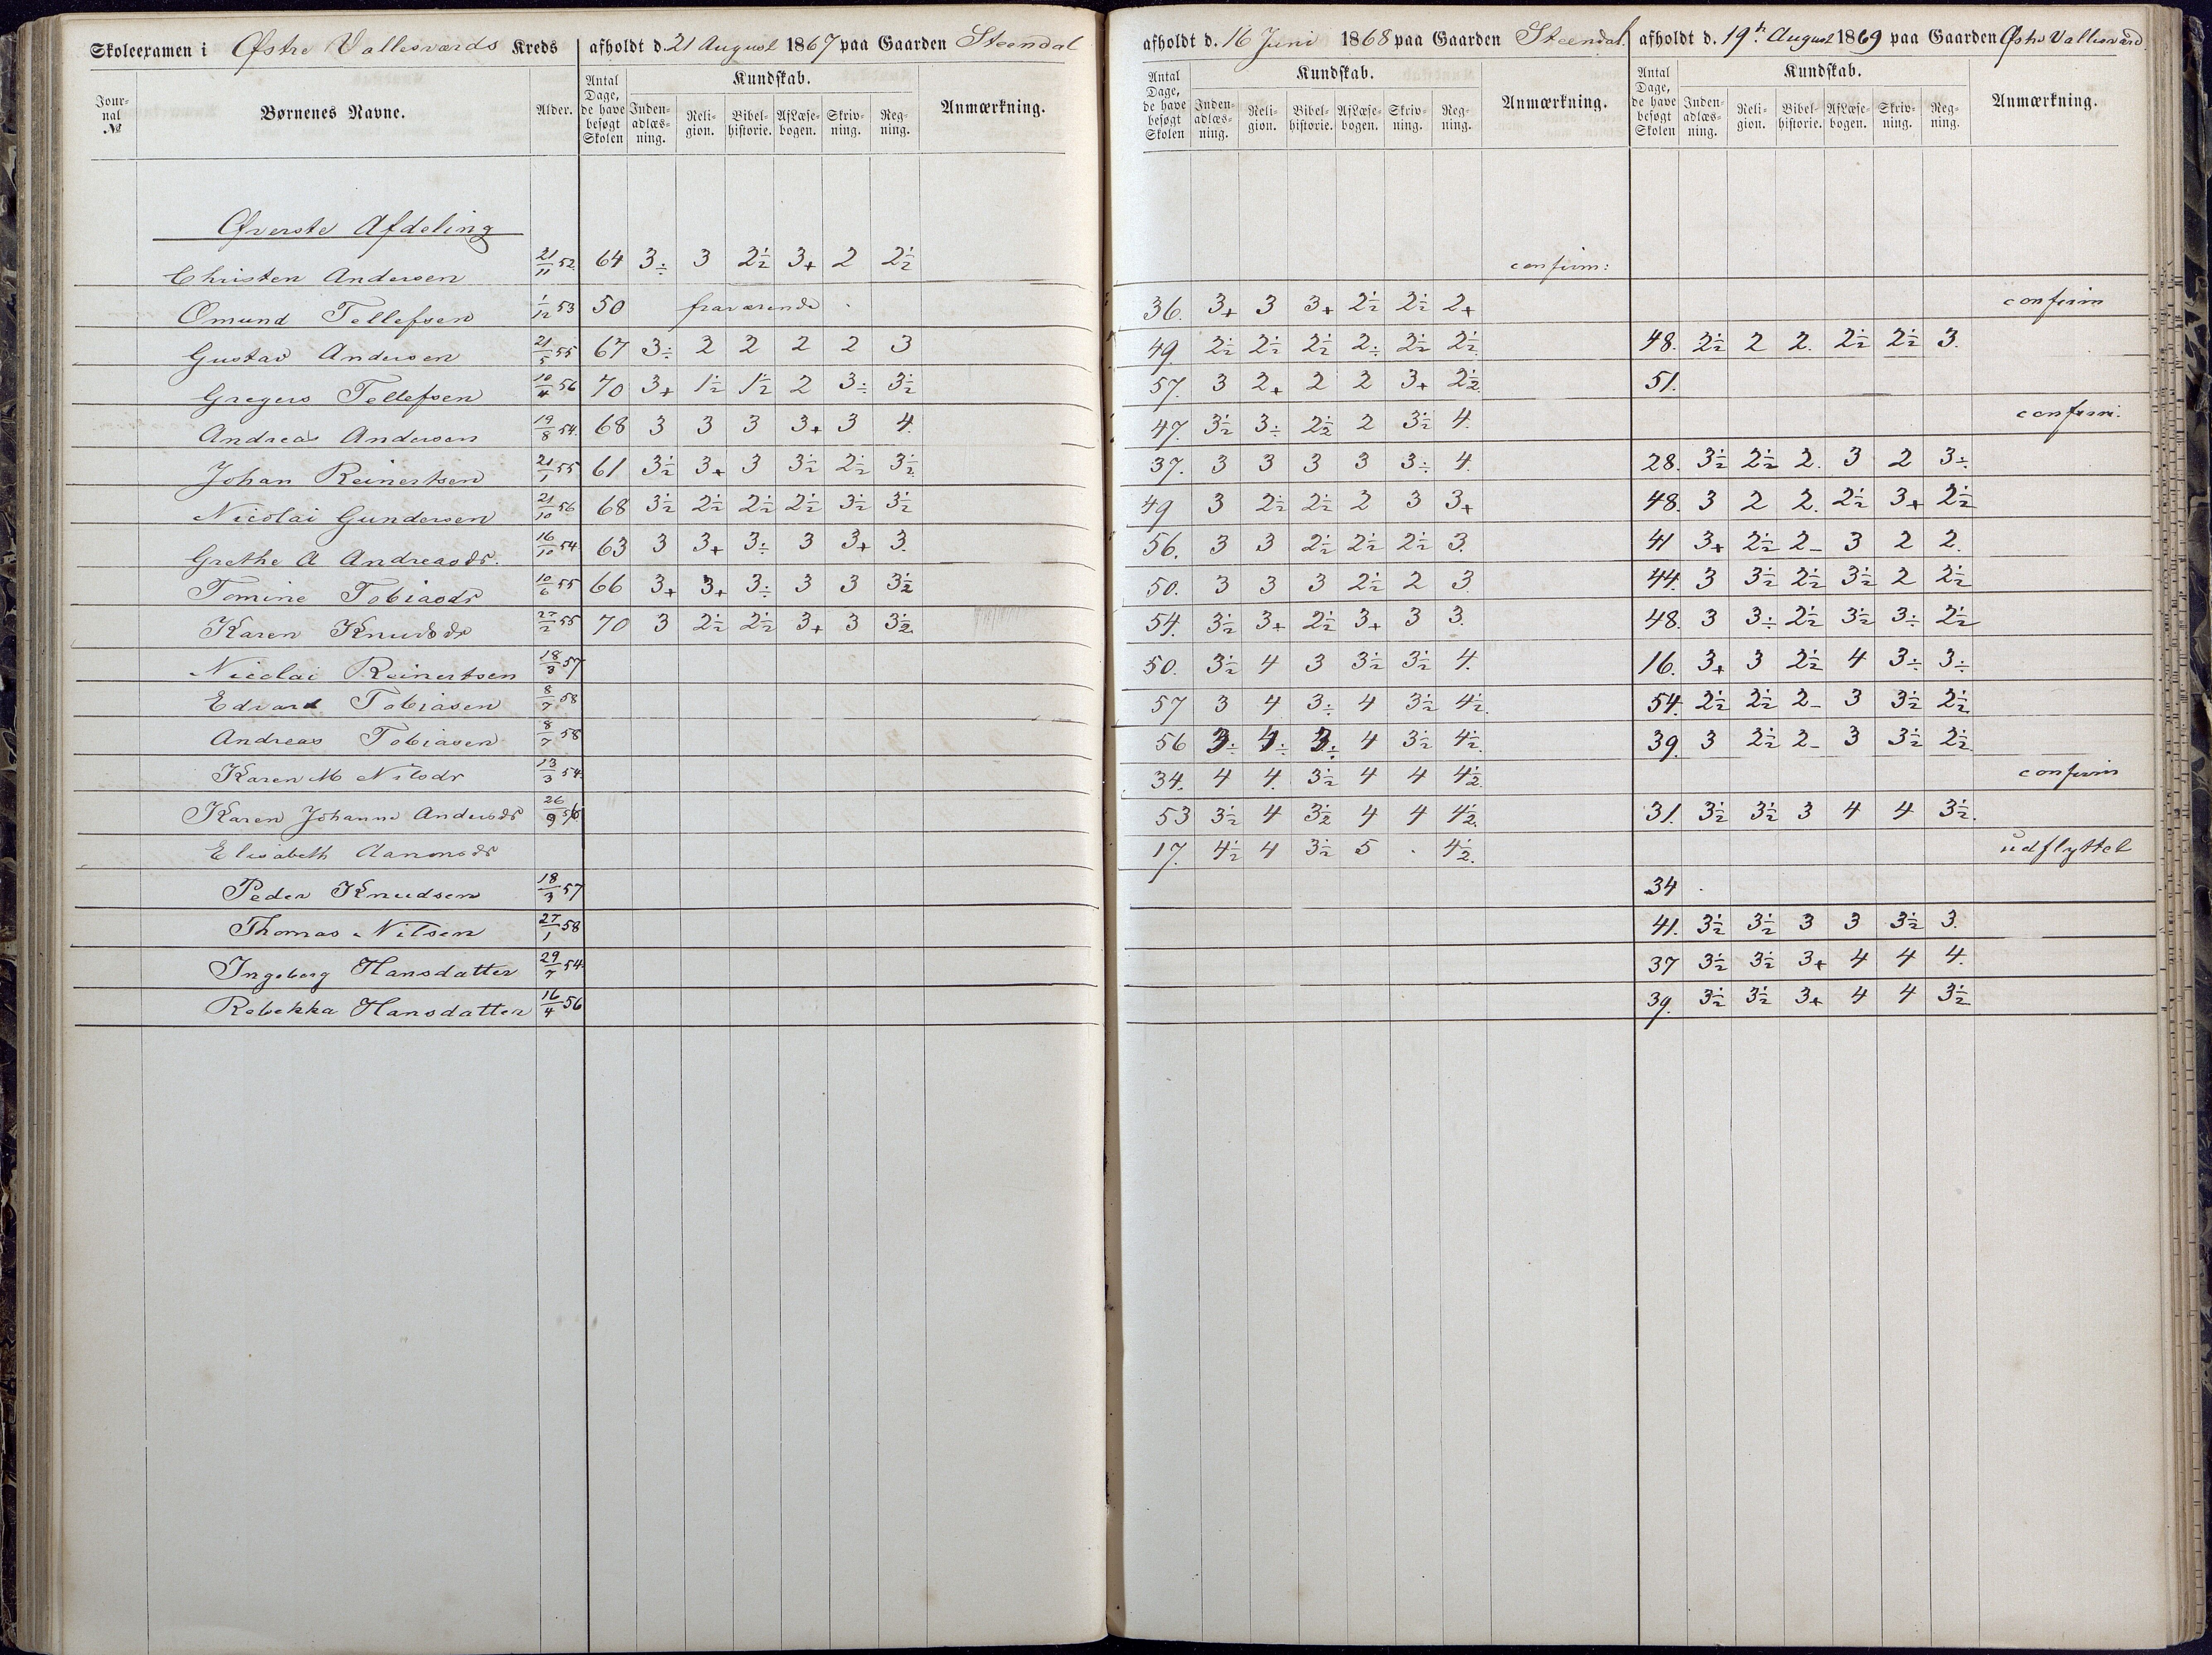 Skoleexamen i Østre Vallesværds Kreds afholdt d. 21 August 1867 paa Gaarden Steendal
Jour-nal № Børnenes Navne. Alder. Antal Dage, de have besøgt Skolen Kundskab. Inden-adlæs-ning. Reli-gion. Bibel-historie. Af Læse-bogen. Skriv-ning. Reg-ning. Anmærkning.
afholdt d. 16 Juni 1868 paa Gaarden Steendal. afholdt d. 19de August 1869 paa Gaarden Østre Vallesværd
Antal Dage, de have besøgt Skolen Kundskab. Inden-adlæs-ning. Reli-gion. Bibel-historie. Af Læse-bogen. Skriv-ning. Reg-ning. Anmærkning. Antal Dage, de have besøgt Skolen Kundskab. Inden-adlæs-ning. Reli-gion. Bibel-historie. Af Læse-bogen. Skriv-ning. Reg-ning. Anmærkning.
Øverste Afdeling
Christen Andersen 21/11 52 64 3÷ 3 2½ 3+ 2 2½ confirm:
Omund Tellefsen 1/12 53 50 fraværende 36. 3+ 3 3+ 2½ 2½ 2+ confirm
Gustav Andersen 21/5 55 67 3÷ 2 2 2 2 3 49. 2½ 2½ 2½ 2÷ 2½ 2½ 48. 2½ 2 2. 2½ 2½ 3.
Gregers Tellefsen 10/4 56 70 3+ 1½ 1½ 2 3÷ 3½ 57. 3 2+ 2 2 3+ 2½ 51.
Andreas Andersen 19/8 54. 68 3 3 3 3+ 3 4. 47. 3½ 3÷ 2½ 2 3½ 4. confirm.
Johan Reinertsen 21/1 55 61 3½ 3+ 3 3½ 2½ 3½ 37. 3 3 3 3 3÷ 4. 28. 3½ 2½ 2. 3 2 3÷
Nicolai Gundersen 21/10 56 68 3½ 2½ 2½ 2½ 3½ 3½ 49 3 2½ 2½ 2 3 3+ 48. 3 2 2. 2½ 3+ 2½
Grethe A Andreasdr. 16/10 54 63 3 3+ 3÷ 3 3+ 3. 56. 3 3 2½ 2½ 2½ 3. 41 3+ 2½ 2- 3 2 2.
Tomine Tobiasdr 10/6 55 66 3+ 3+ 3÷ 3 3 3½ 50. 3 3 3 2½ 2 3. 44. 3 3½ 2½ 3½ 2 2½
Karen Knudsdr 27/2 55 70 3 2½ 2½ 3+ 3 3½ 54. 3½ 3+ 2½ 3+ 3 3. 48. 3 3÷ 2½ 3½ 3÷ 2½
Nicolai Reinertsen 18/3 57 50. 3½ 4 3 3½ 3½ 4. 16. 3+ 3 2½ 4 3÷ 3÷
Edvard Tobiasen 8/7 58 57 3 4 3÷ 4 3½ 4½. 54. 2½ 2½ 2- 3 3½ 2½
Andreas Tobiasen 8/7 58 56 3÷ 4÷ 3÷ 4 3½ 4½. 39. 3 2½ 2- 3 3½ 2½
Karen M Nilsdr 13/3 54. 34. 4 4. 3½ 4 4 4½ confirm
Karen Johanne Andersdr 26/9 56 53 3½ 4 3½ 4 4 4½. 31. 3½ 3½ 3 4 4 3½.
Elisabeth 17. 4½ 4 3½ 5 . 4½. udflyttet
Peder Knudsen 18/3 57 34 .
Thomas Nilsen 27/1 58 41. 3½ 3½ 3 3 3½ 3.
Ingeborg Hansdatter 29/7 54. 37 3½ 3½ 3+ 4 4 4.
Rebekka Hansdatter 16/4 56 39. 3½ 3½ 3+ 4 4 3½